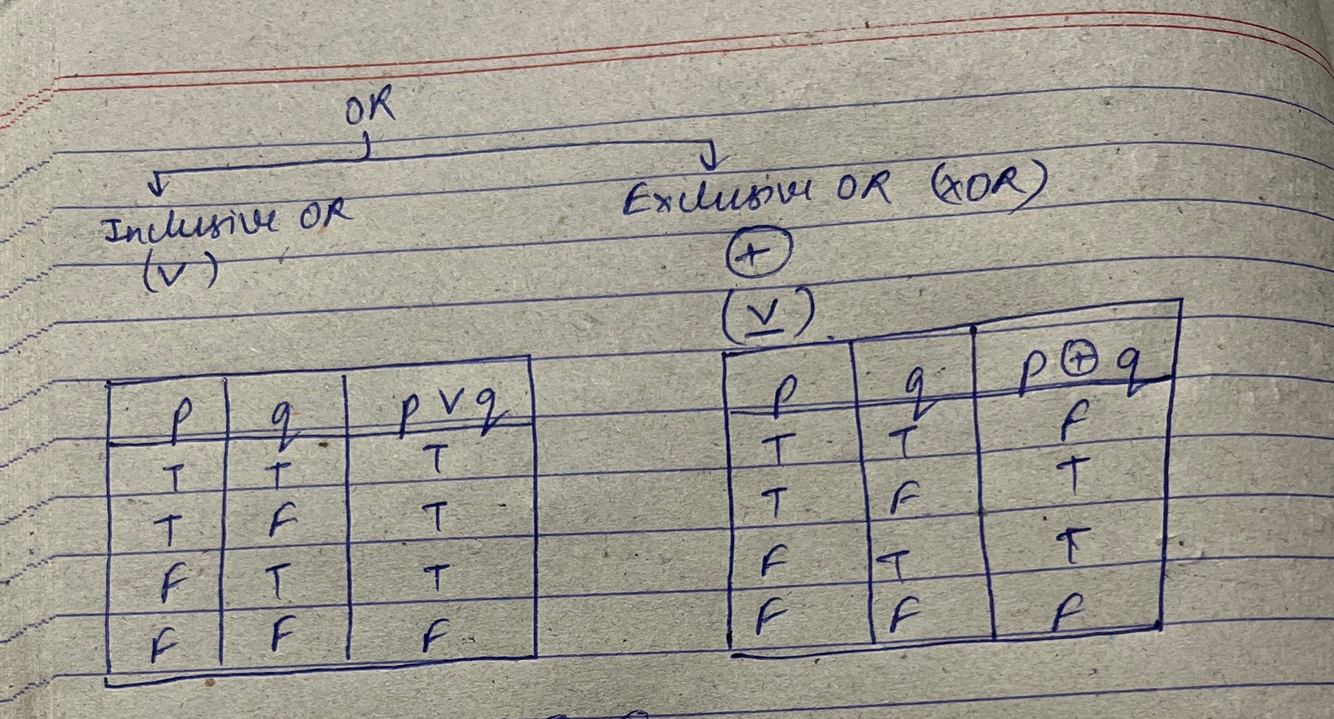 OR
Inclusive OR
(∨)
Exclusive OR (XOR)
⊕
(⊻)
p q p ∨ q
T T T
T F T
F T T
F F F
p q p ⊕ q
T T F
T F T
F T T
F F F